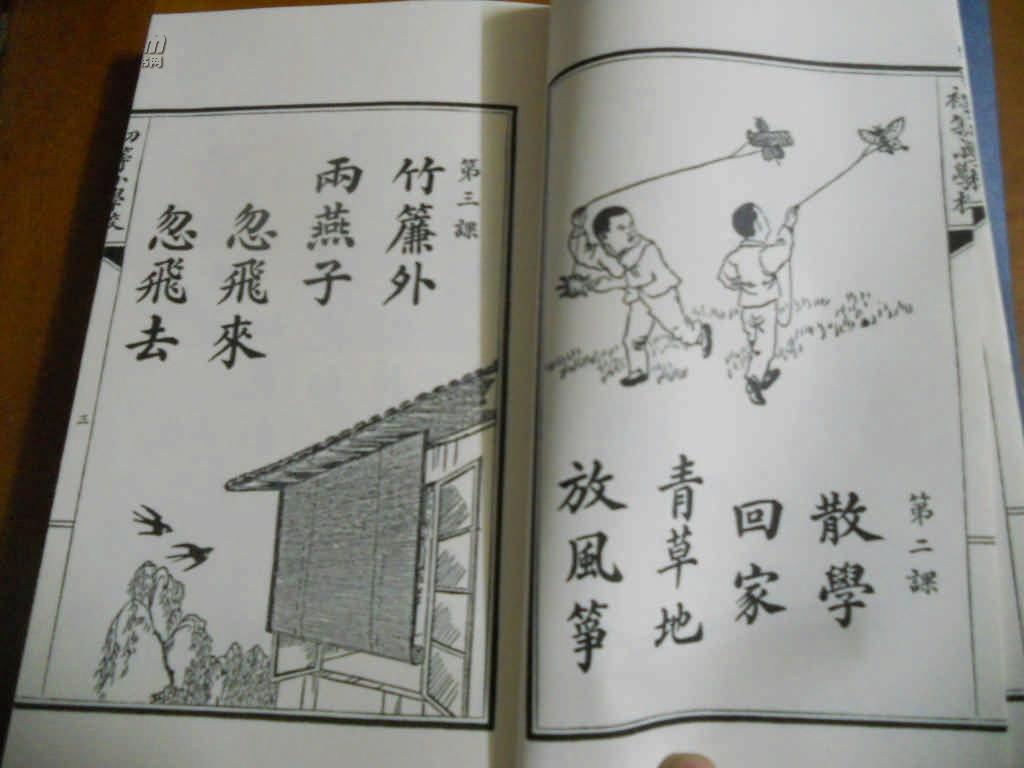 第二課
散學
回家
青草地
放風箏
第三課
竹簾外
兩燕子
忽飛來
忽飛去
三
初等小學校